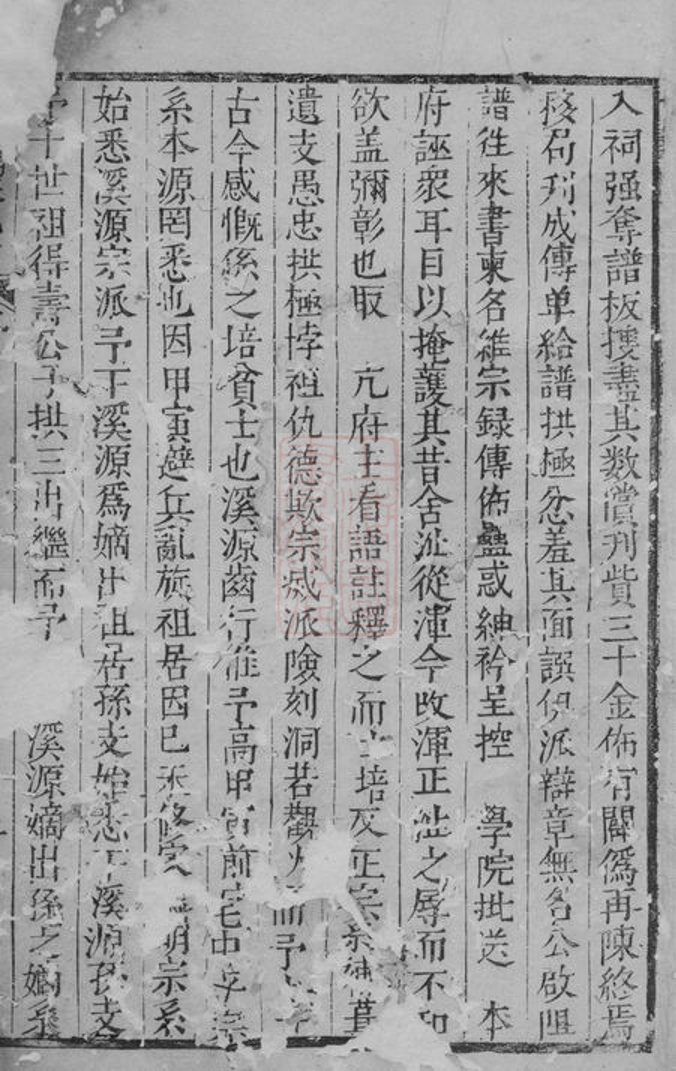 入祠强奪譜板摟盡其数償刋貲三十金佈有關爲再陳終焉
核刋成傳单給譜拱極忿羞其面誤伊派辯章無名公啟阻
譜徃來書柬名維宗録傳佈蠱惑紳衿呈控　學院批送　本
府誣衆耳目以掩護其昔舍沚從渾今改渾正沚之辱而不知
欲盖彌彰也取　亢府主看語註釋之而培反正宗系補葺
遺支愚忠拱極悖祖仇德欺宗烕派險刻洞若觀火而予
古今感慨係之培貧士也溪源齒行惟予高甲寅前宅中享宗
系本源罔悉也因甲寅避兵亂旋祖居因已丞修宗明宗系
始悉溪源宗派予于溪源爲嫡出祖居孫支始悉于溪源孫支
予十世祖得壽公子拱三出繼而予溪源嫡出孫之嫡系